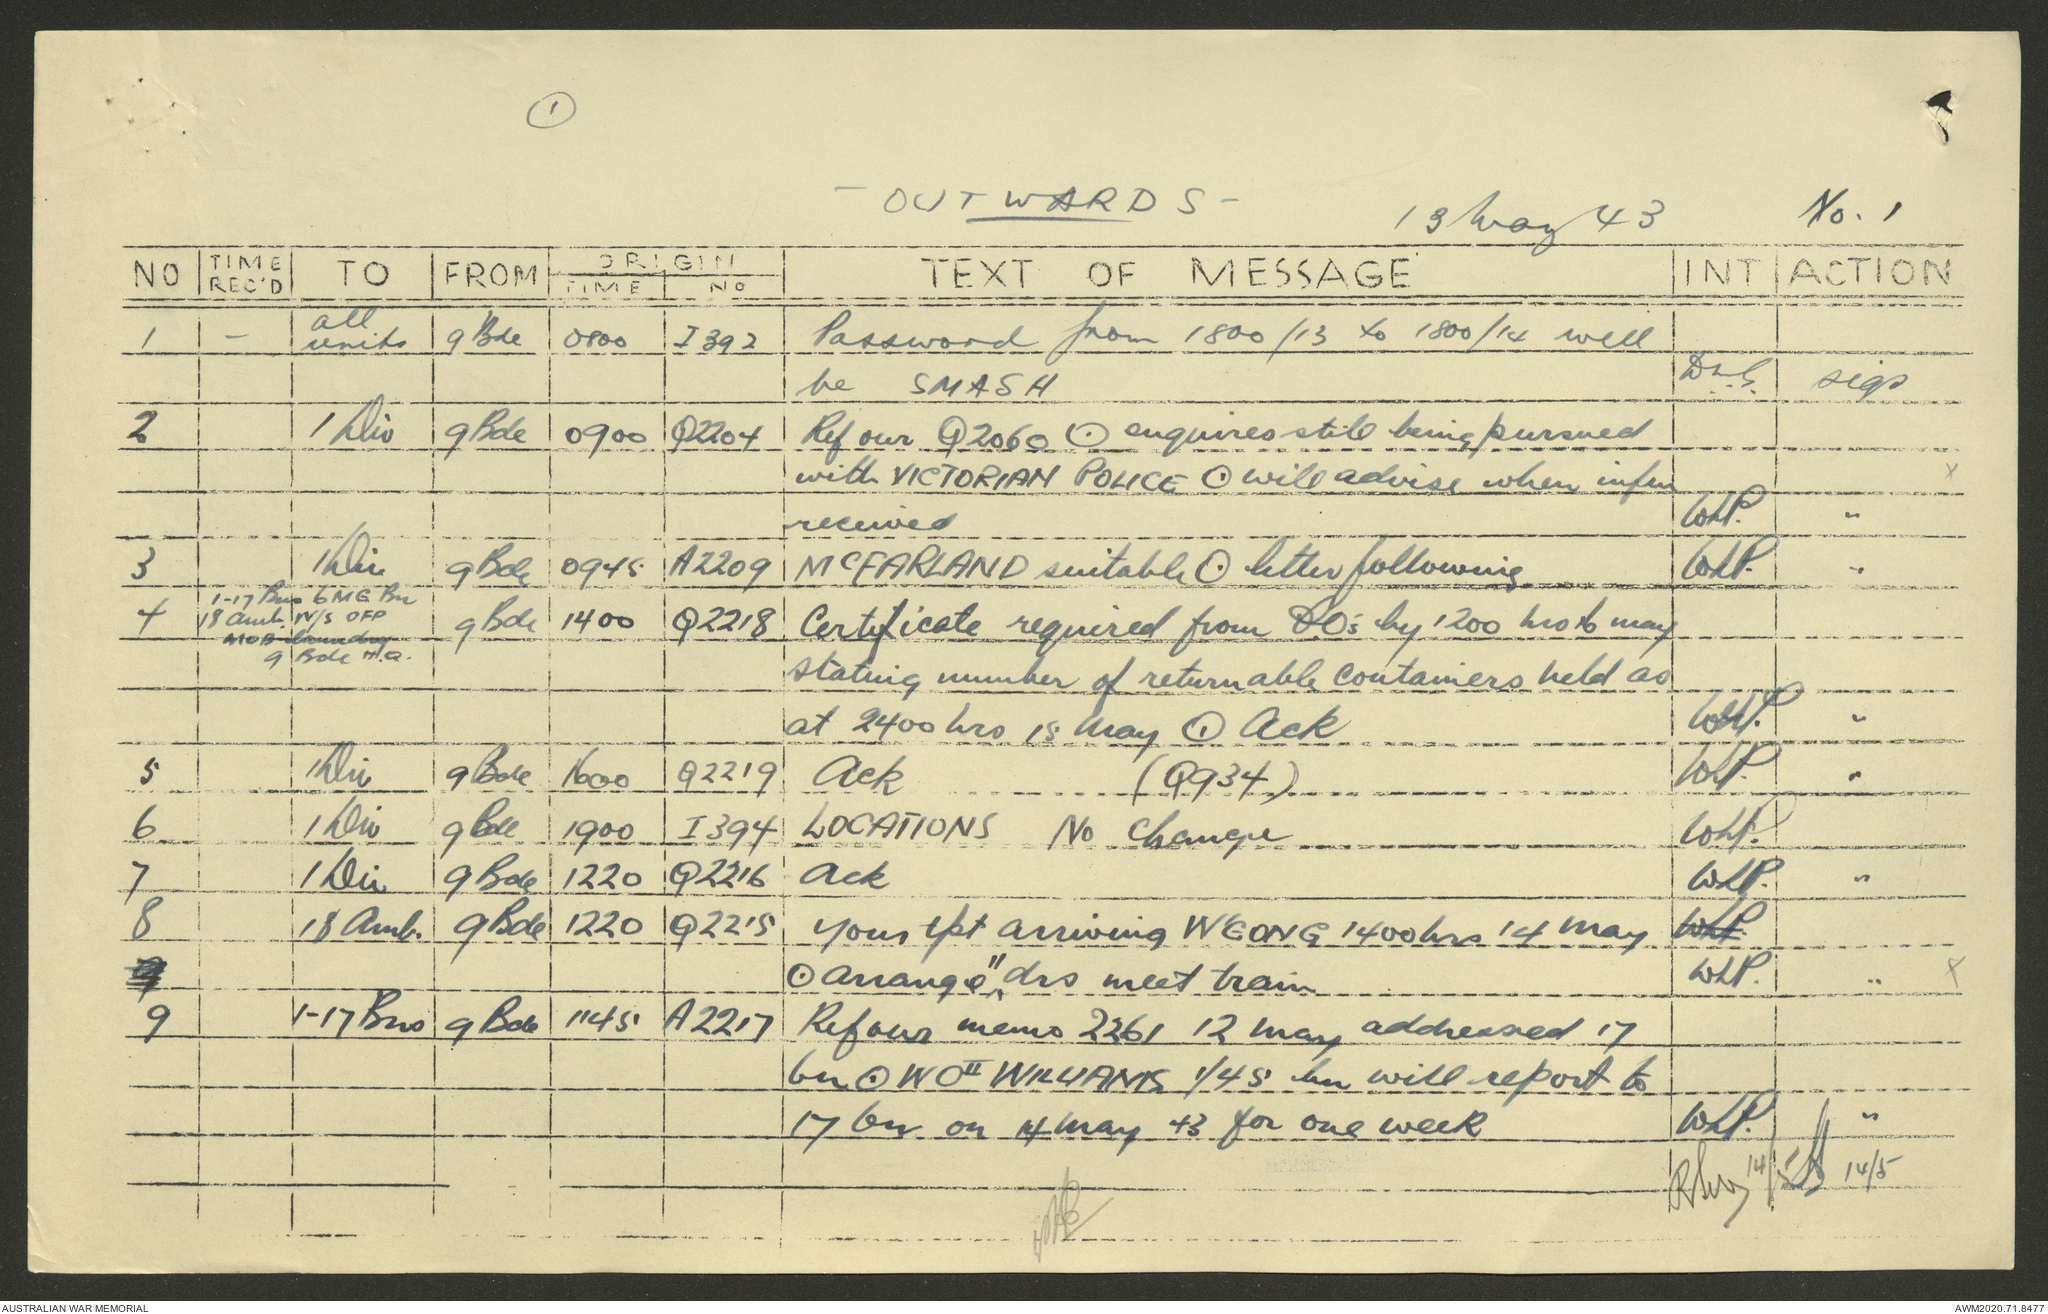 1
- OUTWARDS -
13 May 43 No. 1
NO TIME REC'D TO FROM ORIGIN TIME NO TEXT OF MESSAGE INT ACTION
1 - all units 9 Bde 0800 I392 Password from 1800/13 to 1800/14 will
be SMASH sigs
2 1 Div 9 Bde 0900 Q2204 Ref our Q2060 ⊙ enquires still being pursued
with VICTORIAN POLICE ⊙ will advise when infm x
received WLP. "
3 1 Div 9 Bde 0945 A2209 McFARLAND suitable ⊙ letter following WLP. "
4 1-17 Bns 6 MG Bn 18 Amb. N/S OFP MOB laundry 9 Bde H.Q. 9 Bde 1400 Q2218 Certificate required from by 1200 hrs 16 may
stating number of returnable containers held as
at 2400 hrs 15 May ⊙ Ack WLP. "
5 1 Div 9 Bde 1600 Q2219 Ack (Q934) WLP. "
6 1 Div 9 Bde 1900 I394 LOCATIONS No change WLP.
7 1 Div 9 Bde 1220 Q2216 Ack WLP. "
8 18 Amb. 9 Bde 1220 Q2215 your tpt arriving WGONG 1400 hrs 14 May WLP
9 ⊙ arrange drs meet train WLP. " x
9 1-17 Bns 9 Bde 1145 A2217 Ref our memo 2261 12 May addressed 17
bn ⊙ WO II WILLIAMS 1/45 bn will report to
17 bn on 14 May 43 for one week WLP. "
14/5 14/5
AUSTRALIAN WAR MEMORIAL AWM2020.71.8477